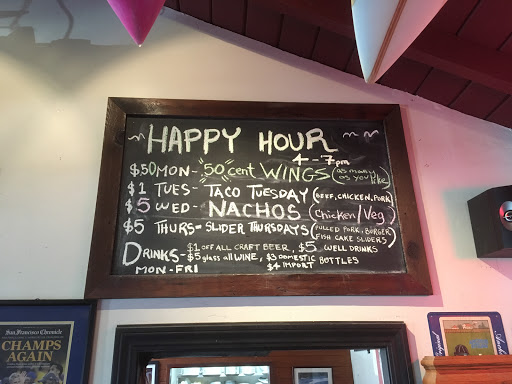 HAPPY HOUR
4-7pm
$.50 MON- "50 cent WINGS (as many as you like)
$1 TUES- TACO TUESDAY (BEEF, CHICKEN, PORK)
$5 WED- NACHOS (Chicken/Veg)
$5 THURS- SLIDER THURSDAYS (PULLED PORK, BURGER, FISH CAKE SLIDERS)
DRINKS- $1 OFF ALL CRAFT BEER, $5 WELL DRINKS
MON-FRI $5 glass all WINE, $3 DOMESTIC BOTTLES
$4 IMPORT
San Francisco Chronicle
CHAMPS
AGAIN